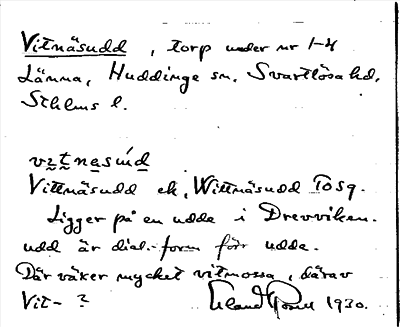 Vitnäsudd, torp under nr 1-4
Länna, Huddinge sn. Svartlösa hd.
Sthlms l.
vitnesúd
Vittnäsudd ek, Wittnäsudd Tosq.
Ligger på en udde i Drevviken.
udd är dial.-form för udde.
Där växer mycket vitmossa, därav
Vit- ? 1930.